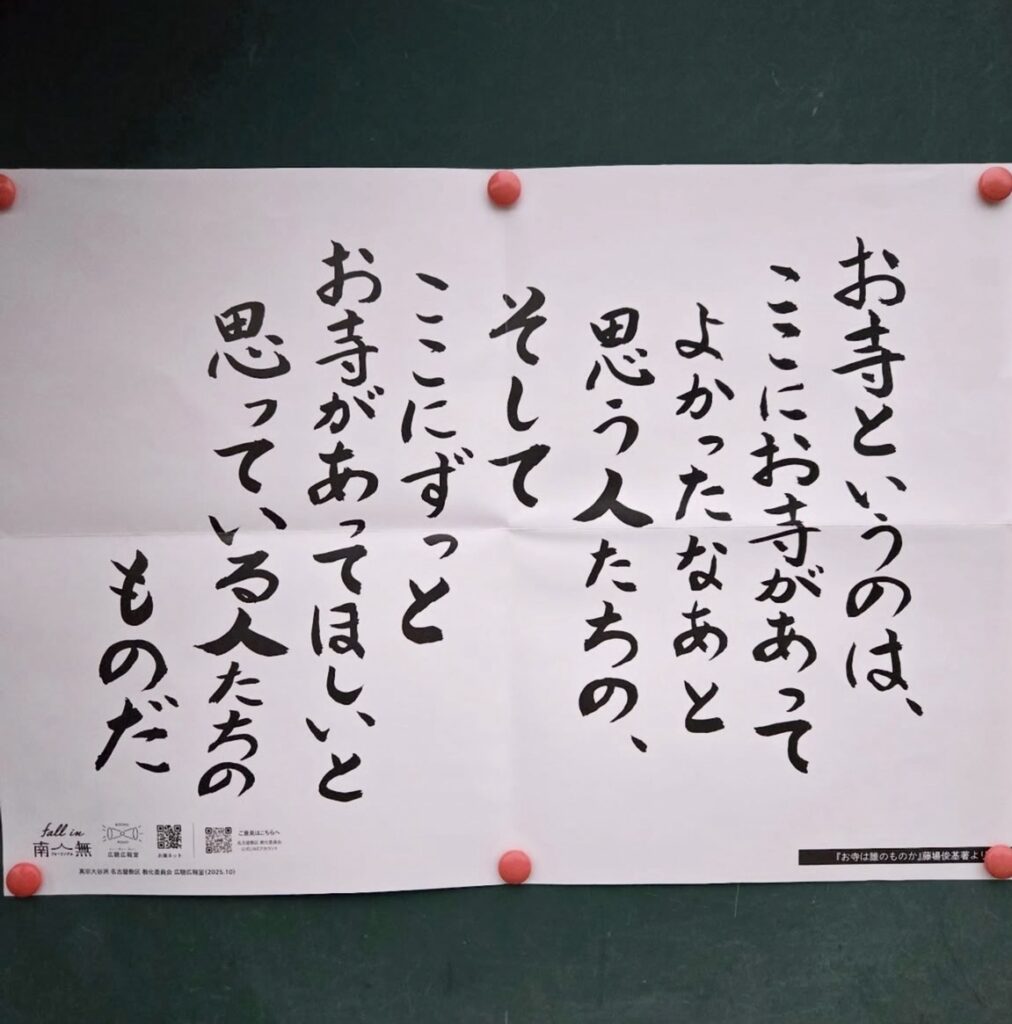 お寺というのは、
ここにお寺があって
よかったなあと
思う人たちの、
そして
ここにずっと
お寺があってほしいと
思っている人たちの
ものだ
『お寺は誰のものか』藤場俊基著よ
fall in
南人無
広聴広報室
お座ネット
ご意見はこちらへ
名古屋教区 教化委員会
公式LINEアカウント
真宗大谷派 名古屋教区 教化委員会 広聴広報室(2025.10)